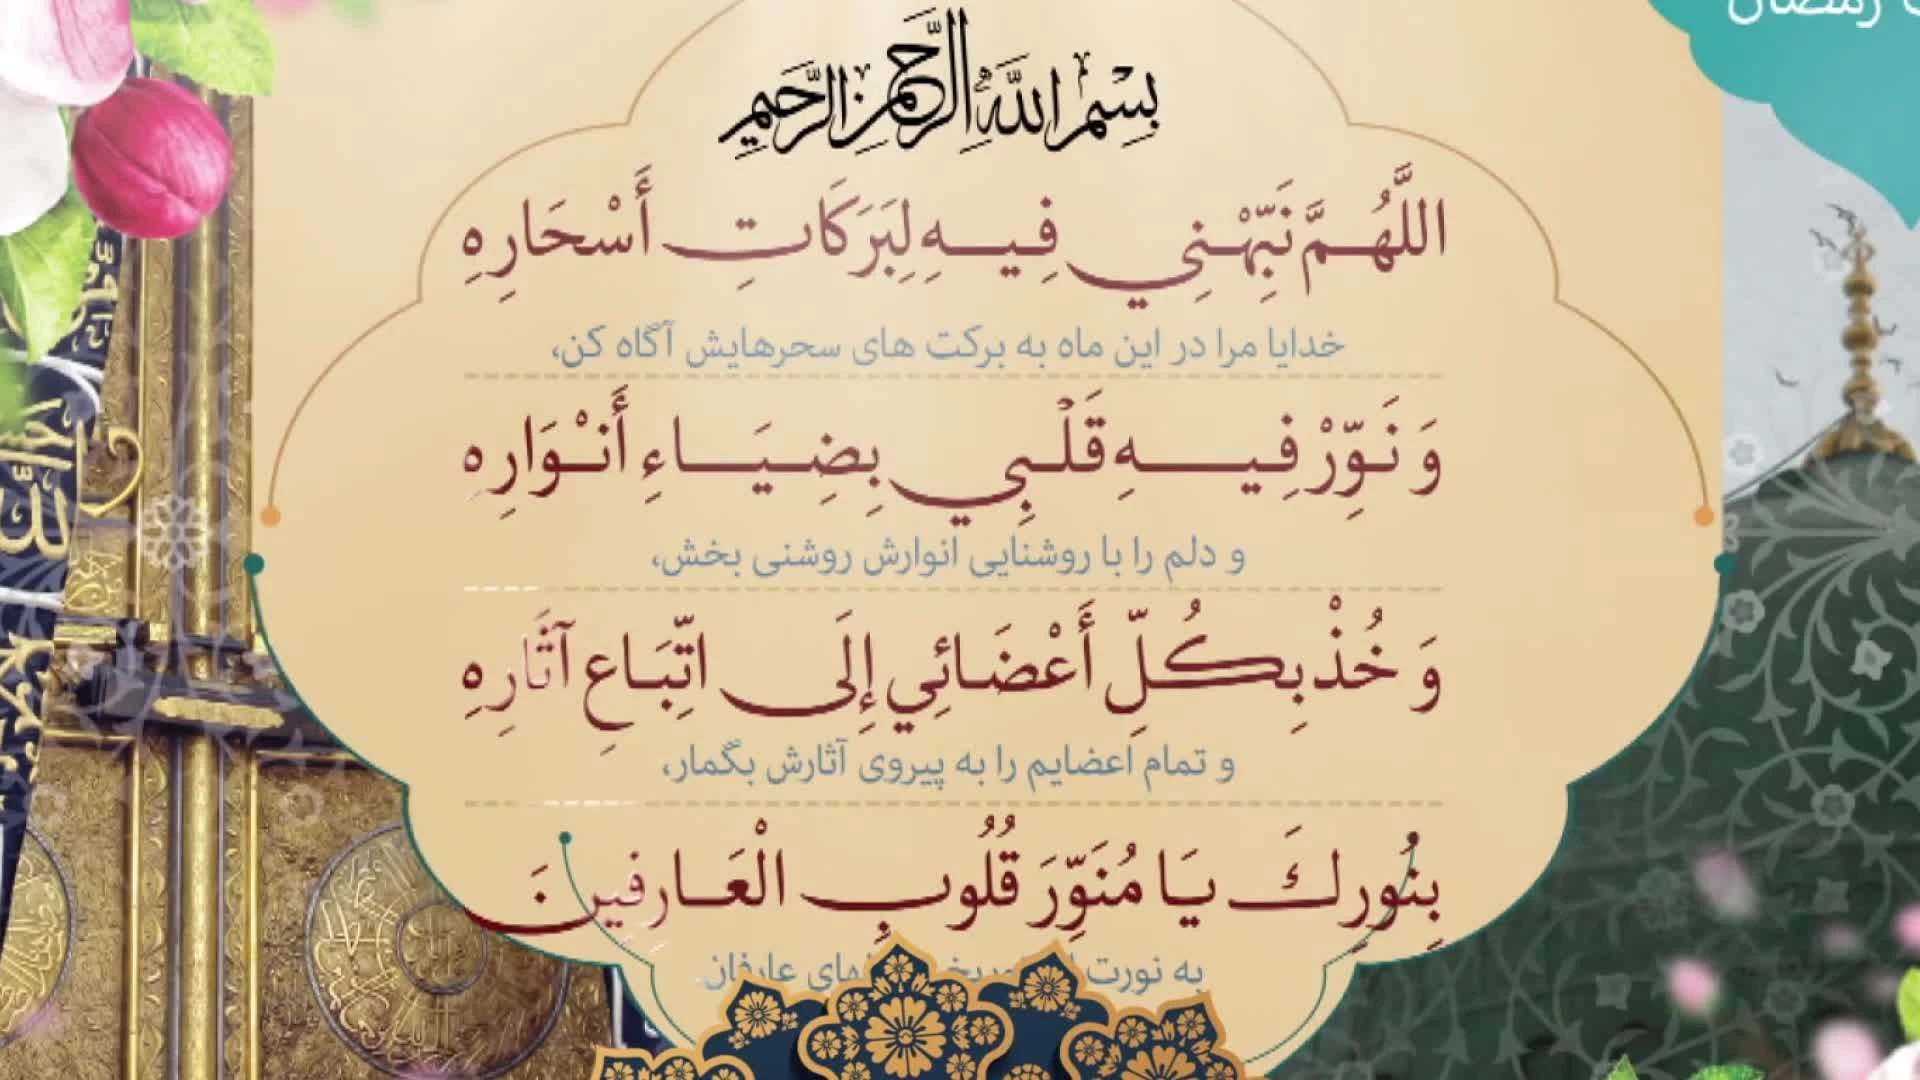 رمضان
بِسْمِ اللَّهِ الرَّحْمَنِ الرَّحِيمِ
اللَّهُمَّ نَبِّهْنِي فِيهِ لِبَرَكَاتِ أَسْحَارِهِ
خدایا مرا در این ماه به برکت های سحرهایش آگاه کن،
وَ نَوِّرْ فِيهِ قَلْبِي بِضِيَاءِ أَنْوَارِهِ
و دلم را با روشنایی انوارش روشنی بخش،
وَ خُذْ بِكُلِّ أَعْضَائِي إِلَى اتِّبَاعِ آثَارِهِ
و تمام اعضایم را به پیروی آثارش بگمار،
بِنُورِكَ يَا مُنَوِّرَ قُلُوبِ الْعَارِفِينَ
به نورت عارفان.